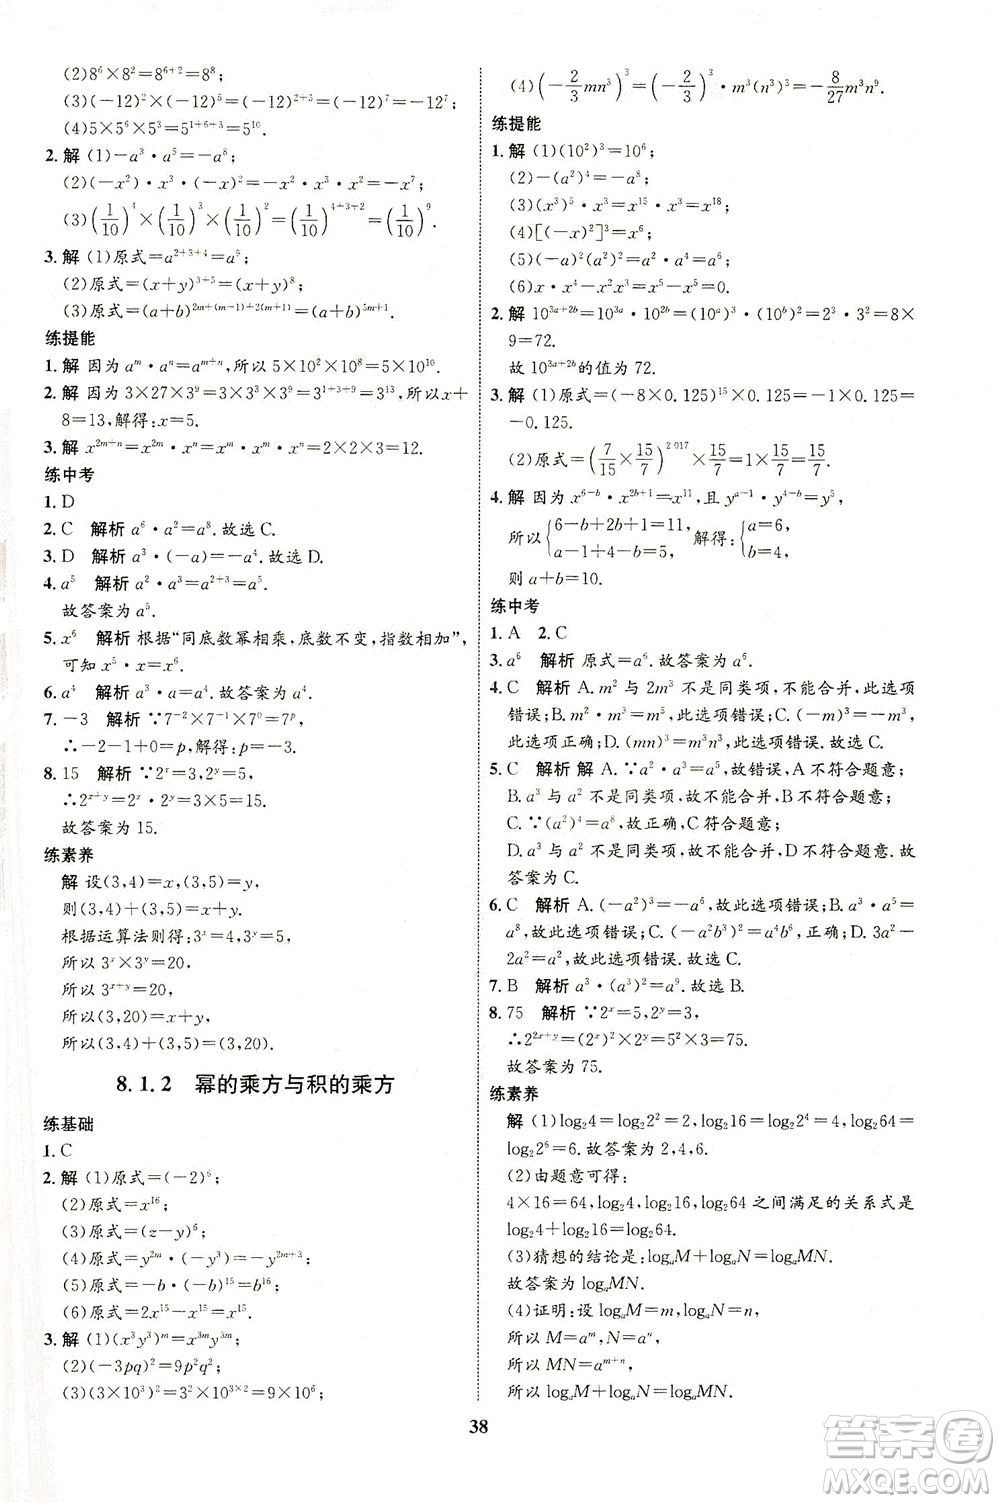 (2)8⁶×8²=8⁶⁺²=8⁸;
(3)(-12)²×(-12)⁵=(-12)²⁺⁵=(-12)⁷=-12⁷;
(4)5×5⁶×5³=5¹⁺⁶⁺³=5¹⁰.
2. 解 (1)-a³·a⁵=-a⁸;
(2)(-x²)·x³·(-x)²=-x²·x³·x²=-x⁷;
(3)(1/10)⁴×(1/10)³×(1/10)²=(1/10)⁴⁺³⁺²=(1/10)⁹.
3. 解 (1)原式=a²⁺³⁺⁴=a⁹;
(2)原式=(x+y)³⁺⁵=(x+y)⁸;
(3)原式=(a+b)^{2m+(m-1)+2(m+1)}=(a+b)^{5m+1}.
练提能
1. 解 因为aᵐ·aⁿ=aᵐ⁺ⁿ,所以5×10²×10⁸=5×10¹⁰.
2. 解 因为3×27×3⁹=3×3³×3⁹=3¹⁺³⁺⁹=3¹³,所以x+
8=13,解得:x=5.
3. 解 x^{2m+n}=xᵐ·xᵐ·xⁿ=2×2×3=12.
练中考
1. D
2. C 解析 a⁶·a²=a⁸.故选C.
3. D 解析 a³·(-a)=-a⁴.故选D.
4. a⁵ 解析 a²·a³=a²⁺³=a⁵.
故答案为a⁵.
5. x⁶ 解析 根据“同底数幂相乘,底数不变,指数相加”,
可知x⁵·x=x⁶.
6. a⁴ 解析 a³·a=a⁴.故答案为a⁴.
7. -3 解析 ∵7⁻²×7⁻¹×7⁰=7ᵖ,
∴-2-1+0=p,解得:p=-3.
8. 15 解析 ∵2ˣ=3,2ʸ=5,
∴2ˣ⁺ʸ=2ˣ·2ʸ=3×5=15.
故答案为15.
练素养
解 设(3,4)=x,(3,5)=y,
则(3,4)+(3,5)=x+y.
根据运算法则得:3ˣ=4,3ʸ=5,
所以3ˣ×3ʸ=20,
所以3ˣ⁺ʸ=20,
所以(3,20)=x+y,
所以(3,4)+(3,5)=(3,20).
8.1.2 幂的乘方与积的乘方
练基础
1. C
2. 解 (1)原式=(-2)⁶;
(2)原式=x¹⁶;
(3)原式=(z-y)⁶;
(4)原式=y^{2m}·(-y³)=-y^{2m+3};
(5)原式=-b·(-b)¹⁵=b¹⁶;
(6)原式=2x¹⁵-x¹⁵=x¹⁵.
3. 解 (1)(x³y³)ᵐ=x^{3m}y^{3m};
(2)(-3pq)²=9p²q²;
(3)(3×10³)²=3²×10^{3×2}=9×10⁶;
(4)(-2/3 mn³)³=(-2/3)³·m³(n³)³=-8/27 m³n⁹.
练提能
1. 解 (1)(10²)³=10⁶;
(2)-(a²)⁴=-a⁸;
(3)(x³)⁵·x³=x¹⁵·x³=x¹⁸;
(4)[(-x)²]³=x⁶;
(5)(-a)²(a²)²=a²·a⁴=a⁶;
(6)x·x⁴-x²·x³=x⁵-x⁵=0.
2. 解 10^{3a+2b}=10^{3a}·10^{2b}=(10ᵃ)³·(10ᵇ)²=2³·3²=8×
9=72.
故10^{3a+2b}的值为72.
3. 解 (1)原式=(-8×0.125)¹⁵×0.125=-1×0.125=
-0.125.
(2)原式=(7/15×15/7)^{2 017}×15/7=1×15/7=15/7.
4. 解 因为x^{6-b}·x^{2b+1}=x¹¹,且y^{a-1}·y^{4-b}=y⁵,
所以{6-b+2b+1=11, a-1+4-b=5, 解得:{a=6, b=4.
则a+b=10.
练中考
1. A 2. C
3. a⁶ 解析 原式=a⁶.故答案为a⁶.
4. C 解析 A. m²与2m³不是同类项,不能合并,此选项
错误;B. m²·m³=m⁵,此选项错误;C. (-m)³=-m³,
此选项正确;D. (mn)³=m³n³,此选项错误.故选C.
5. C 解析 解 A. ∵a²·a³=a⁵,故错误,A不符合题意;
B. a³与a²不是同类项,故不能合并,B不符合题意;
C. ∵(a²)⁴=a⁸,故正确,C符合题意;
D. a³与a²不是同类项,故不能合并,D不符合题意.故
答案为C.
6. C 解析 A. (-a²)³=-a⁶,故此选项错误;B. a³·a⁵=
a⁸,故此选项错误;C. (-a²b³)²=a⁴b⁶,正确;D. 3a²-
2a²=a²,故此选项错误.故选C.
7. B 解析 a³·(a³)²=a⁹.故选B.
8. 75 解析 ∵2ˣ=5,2ʸ=3,
∴2^{2x+y}=(2ˣ)²×2ʸ=5²×3=75.
故答案为75.
练素养
解 (1)log₂4=log₂2²=2,log₂16=log₂2⁴=4,log₂64=
log₂2⁶=6.故答案为2,4,6.
(2)由题意可得:
4×16=64,log₂4,log₂16,log₂64之间满足的关系式是
log₂4+log₂16=log₂64.
(3)猜想的结论是:logₐM+logₐN=logₐMN.
故答案为logₐMN.
(4)证明:设logₐM=m,logₐN=n,
所以M=aᵐ,N=aⁿ,
所以MN=aᵐ⁺ⁿ,
所以logₐM+logₐN=logₐMN.
38
答案圈
MXQE.COM